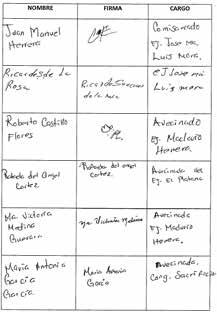 NOMBRE FIRMA CARGO
Juan Manuel Herrera
Comisariado Ej. Jose Ma. Luis Mora.
Ricardo de la Rosa
Ej Jose ma Luis mora
Roberto Castillo Flores
Avecinado Ej. Maclovio Herrera
Roberto del Angel Cortez
Roberto del angel cortez
Avecinado del Ej. El
Ma Victoria Medina Guevara
Ma Victoria Medina
Avecinada Ej. Maclovio Herrera.
Maria Antonia Garcia Garcia
Maria Antonia Garcia
Avecinada. Cong.